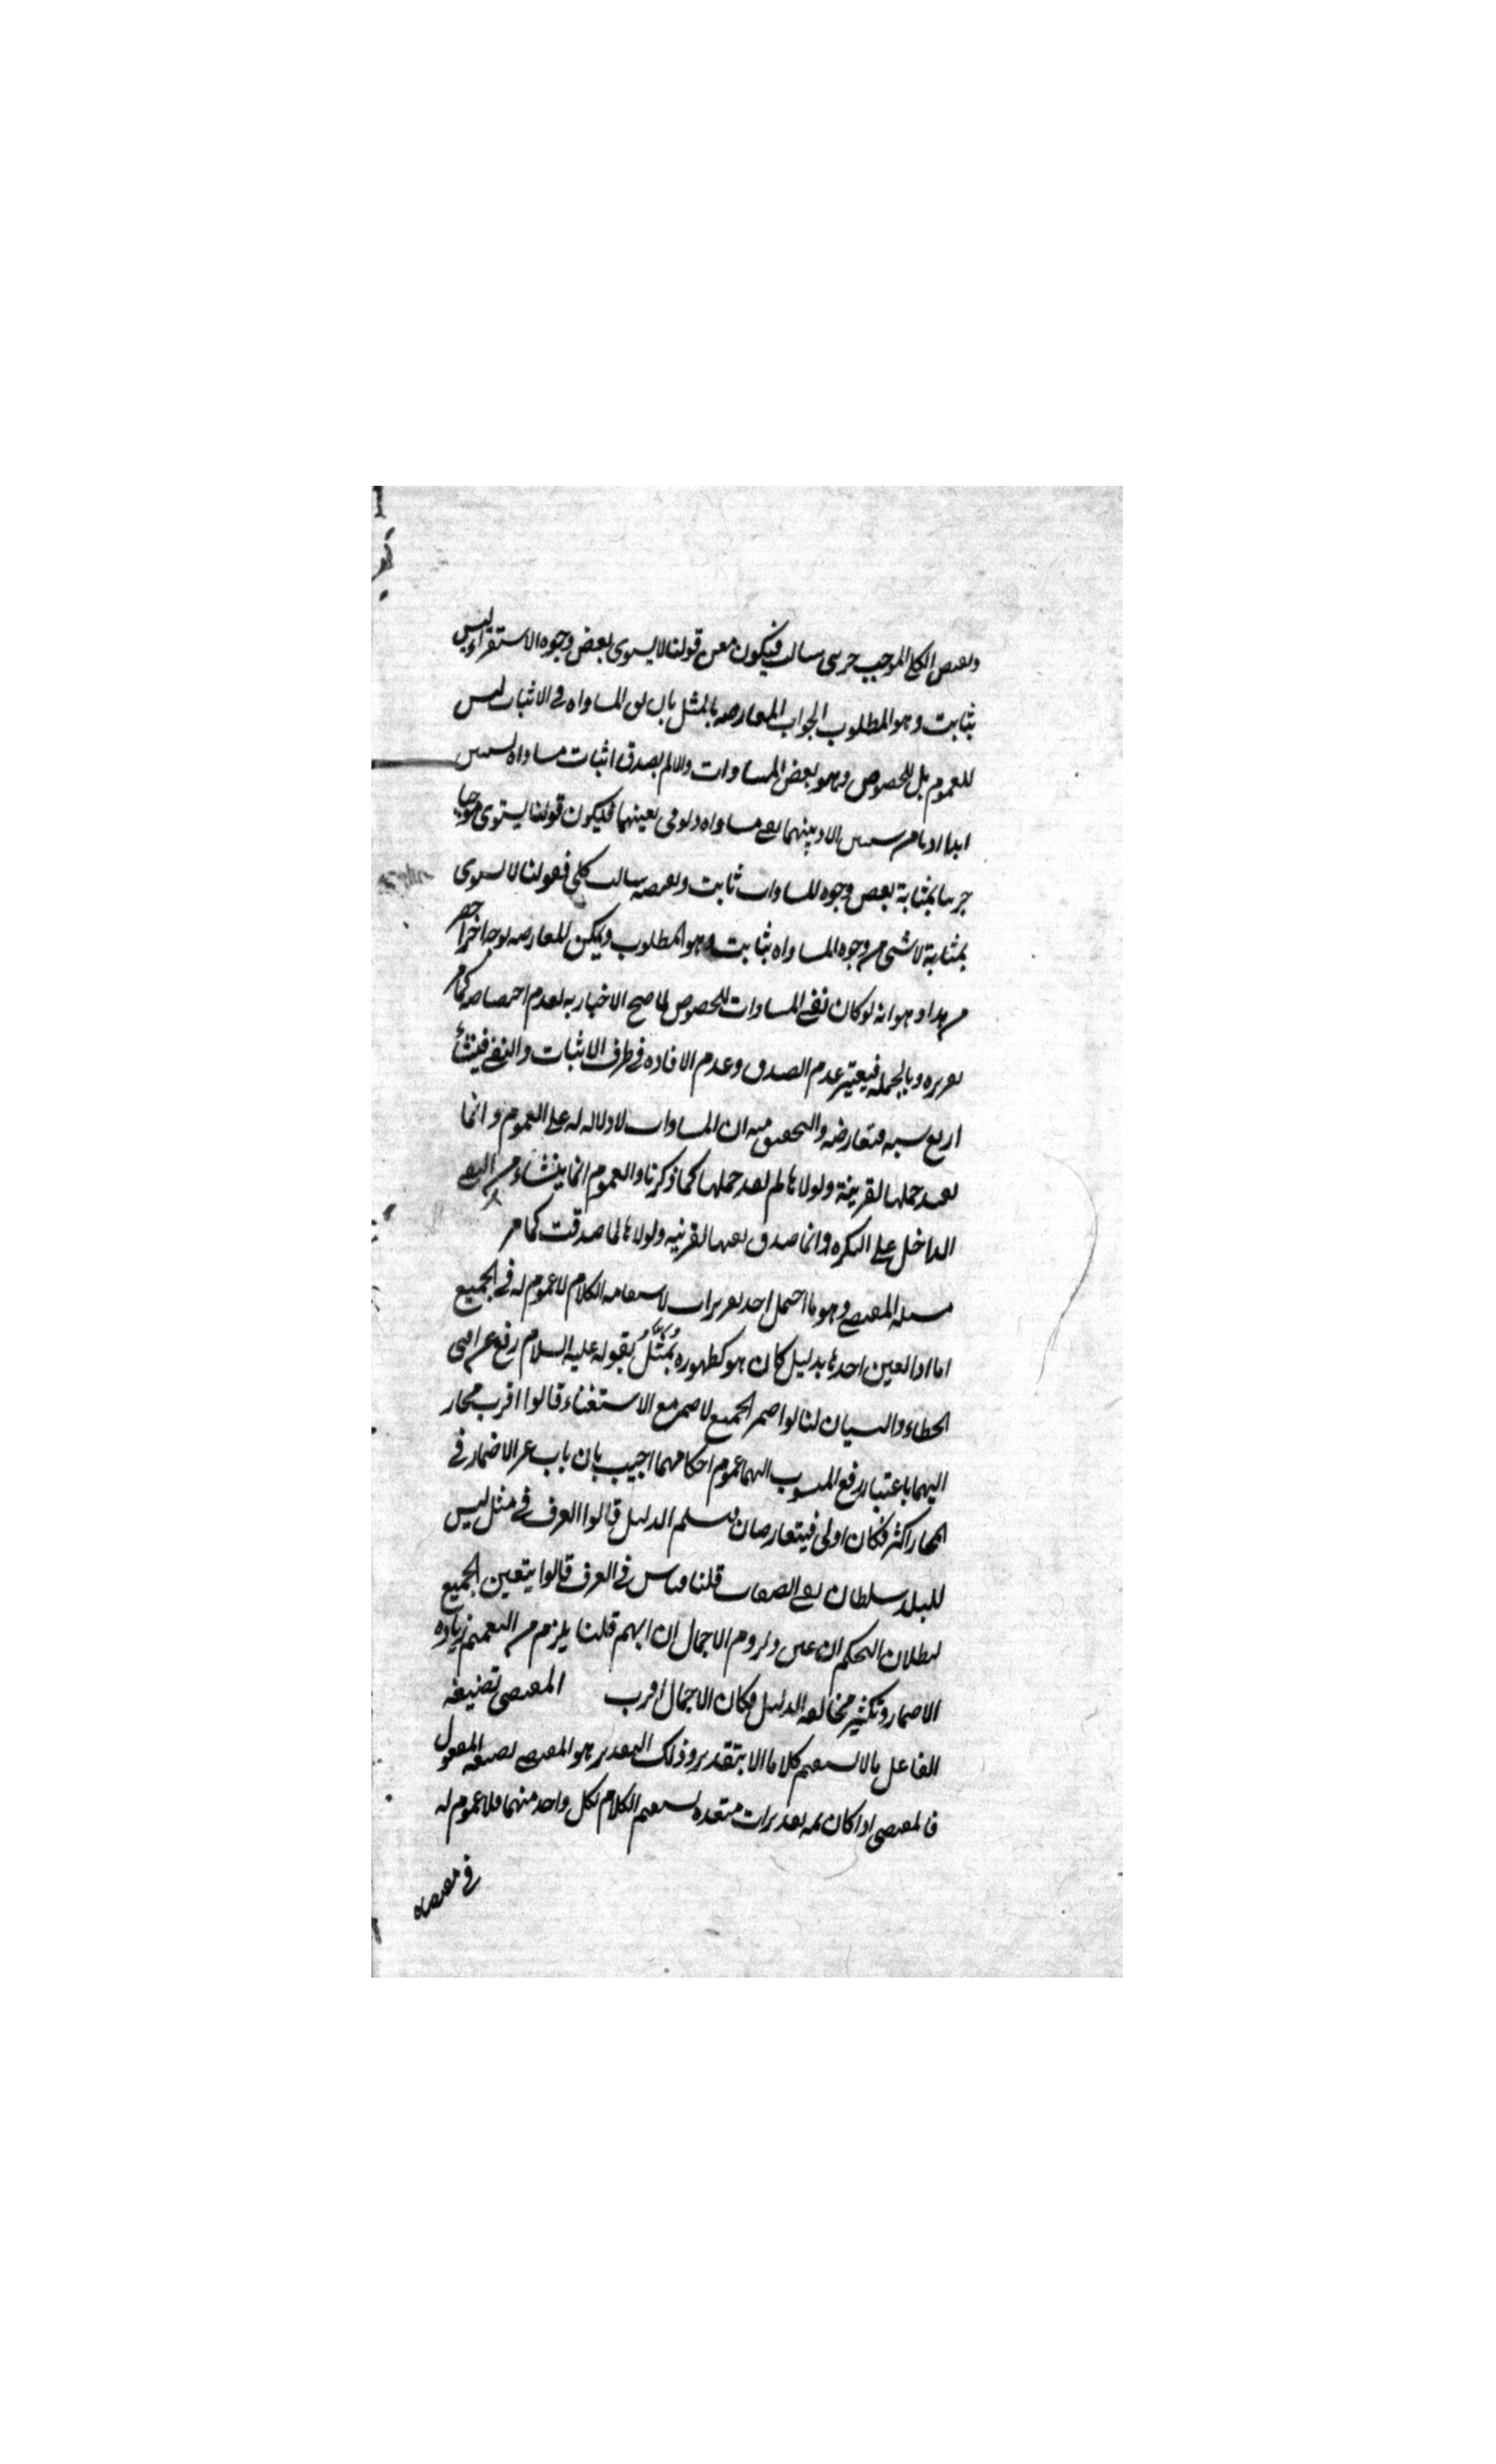 ونقيض الكلي الموجب جزئي سالب فيكون معنى قولنا لا يستوي بعض وجوه الاستواء ليس
بثابت وهو المطلوب الجواب المعارضه بالمثل بان يق المساواه في الاثبات ليس
للعموم بل للخصوص وهو بعض المساوات والا لم يصدق اثبات مساواه لشيئين
ابدا اذ ما من شيئين الا وبينهما نفي مساواه ولو في تعينهما فيكون قولنا يستوي موجبا
جزئيا بمثابة بعض وجوه المساوات ثابت ونقيضه سالب كلي فقولنا لا يستوي
بمثابة لا شئ من وجوه المساواه بثابت وهو المطلوب ويمكن المعارضه بوجه اخر اخصر
من هذا وهو انه لو كان نفي المساوات للخصوص لما صح الاخبار به لعدم اختصاصه كما مر
تقريره وبالجمله فيعتبر عدم الصدق وعدم الافاده في طرف الاثبات والنفي فينشأ
اربع شبه متعارضه والتحقيق فيه ان المساوات لا دلاله له على العموم وانما
يفيد حملها لقرينة ولولاها لم يفد حملها كما ذكرنا والعموم انما ينشاء من النفي
الداخل على النكره وانما صدق نفيها لقرنيه ولولاها لما صدقت كما مر
مسئله المقتضي وهو ما احتمل احد تقديرات لاستقامه الكلام لا عموم له في الجميع
اما اذا تعين احدها بدليل كان هو كظهوره يُمَثَّلُ بقوله عليه السلام رفع عن امتي
الخطاء والنسيان لنا لو اضمر الجميع لاضمر مع الاستغناء قالوا اقرب مجاز
اليهما باعتبار رفع المنسوب اليهما عموم احكامهما اجيب بان باب غير الاضمار في
المجاز اكثر فكان اولى فيتعارضان فيسلم الدليل قالوا العرف في مثل ليس
للبلد سلطان نفي الصفات قلنا قياس في العرف قالوا يتعين الجميع
لبطلان التحكم ان عين ولزوم الاجمال ان ابهم قلنا يلزم من التعميم زياده
الاضمار وتكثير مخالفه الدليل فكان الاجمال اقرب المقتضي بصيغه
الفاعل ما لا يستقيم كلاما الا بتقدير وذلك التقدير هو المقتضى بصيغه المفعول
فالمقتضي اذا كان ثمه تقديرات متعدده يستقيم الكلام لكل واحد منهما فلا عموم له
في مقتضاه